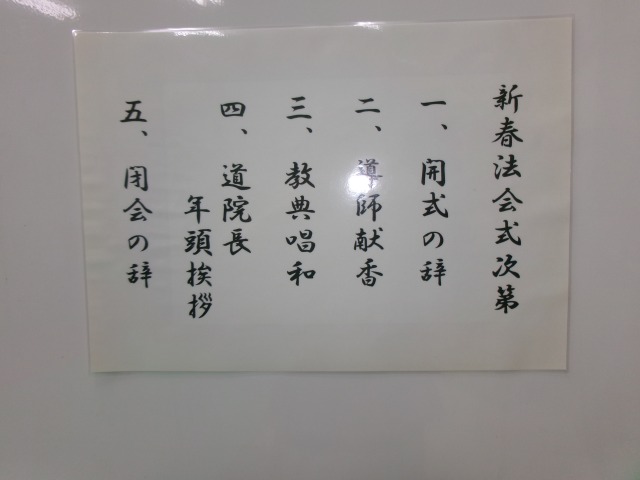 新春法会式次第
一、開式の辞
二、導師献香
三、教典唱和
四、道院長
年頭挨拶
五、閉会の辞